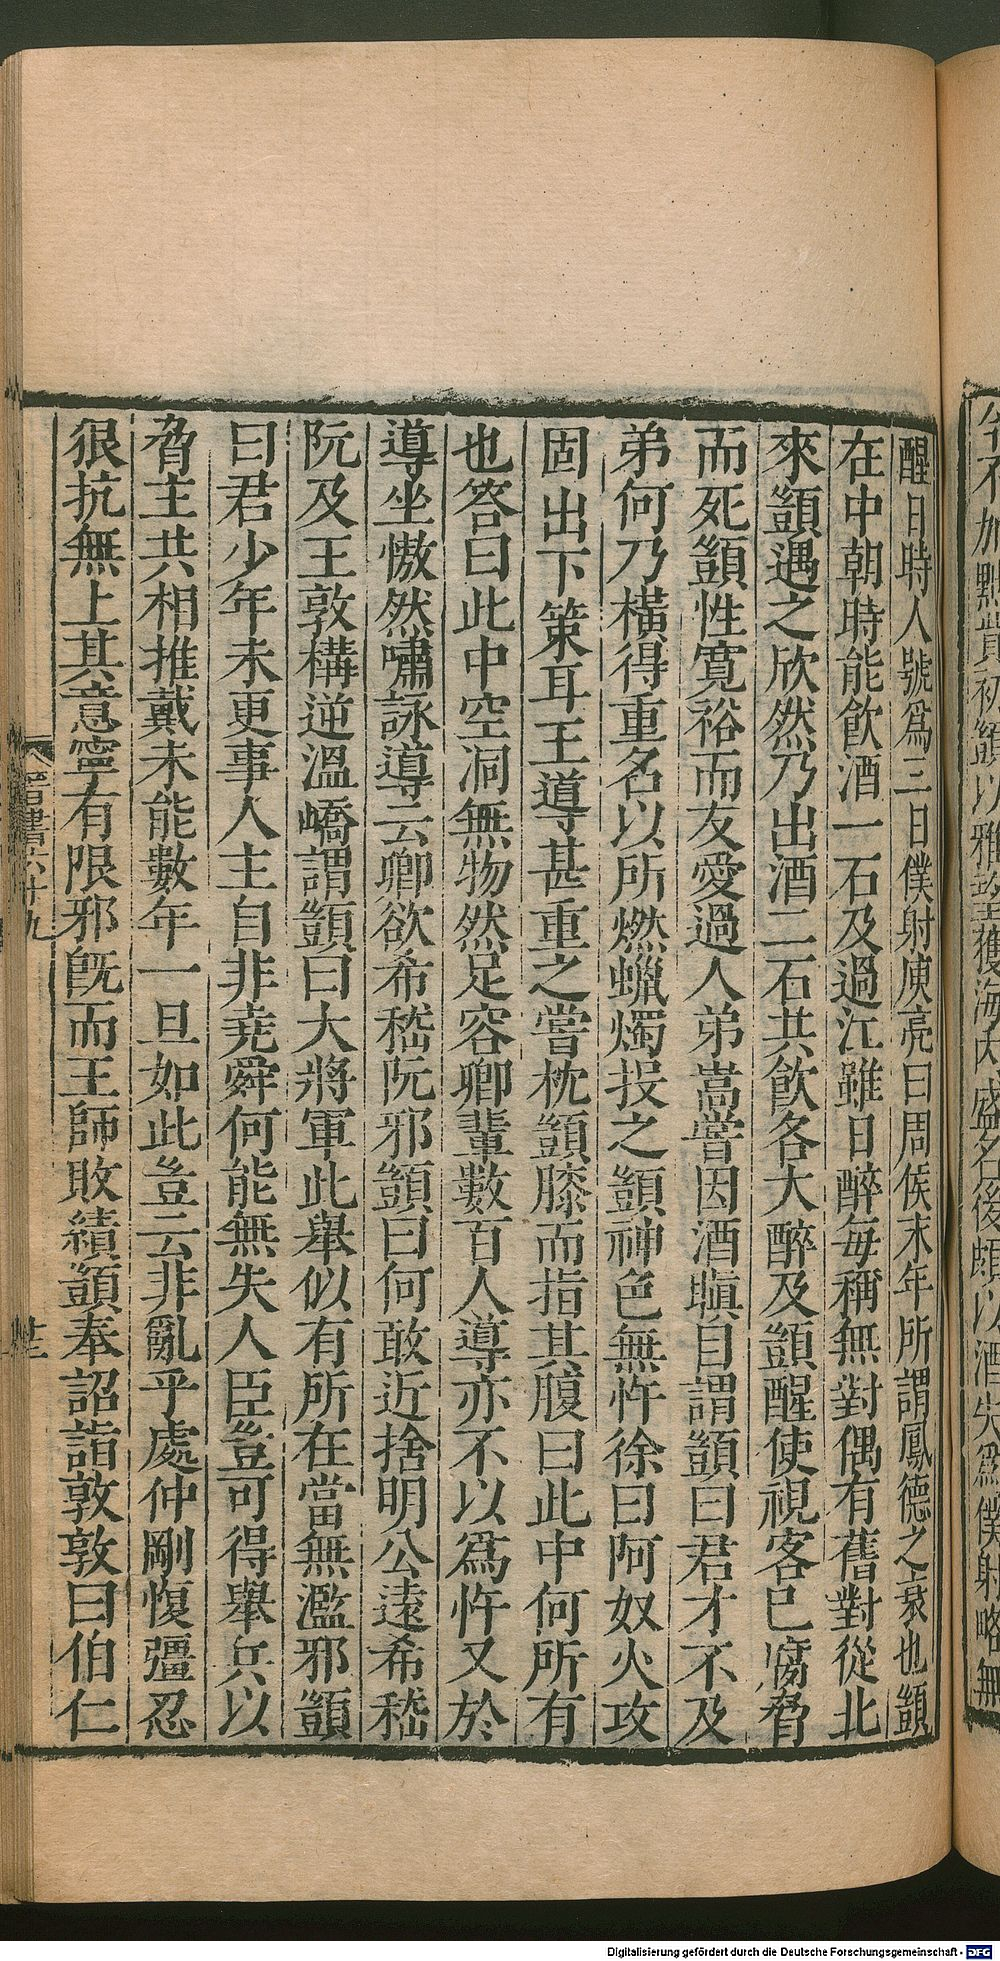 醒日時人號爲三日僕射庾亮曰周侯末年所謂鳳德之衰也顗
在中朝時能飮酒一石及過江雖日醉每稱無對偶有舊對從北
來顗遇之欣然乃出酒二石共飮各大醉及顗醒使視客已腐脅
而死顗性寬裕而友愛過人弟嵩嘗因酒瞋目謂顗曰君才不及
弟何乃橫得重名以所燃蠟燭投之顗神色無忤徐曰阿奴火攻
固出下策耳王導甚重之嘗枕顗膝而指其腹曰此中何所有
也答曰此中空洞無物然足容卿輩數百人導亦不以爲忤又於
導坐傲然嘯詠導云卿欲希嵇阮邪顗曰何敢近捨明公遠希嵇
阮及王敦構逆溫嶠謂顗曰大將軍此舉似有所在當無濫邪顗
曰君少年未更事人主自非堯舜何能無失人臣豈可得舉兵以
脅主共相推戴未能數年一旦如此豈云非亂乎處仲剛愎彊忍
狠抗無上其意寧有限邪旣而王師敗績顗奉詔詣敦敦曰伯仁
晉書六十九
Digitalisierung gefördert durch die Deutsche Forschungsgemeinschaft - DFG